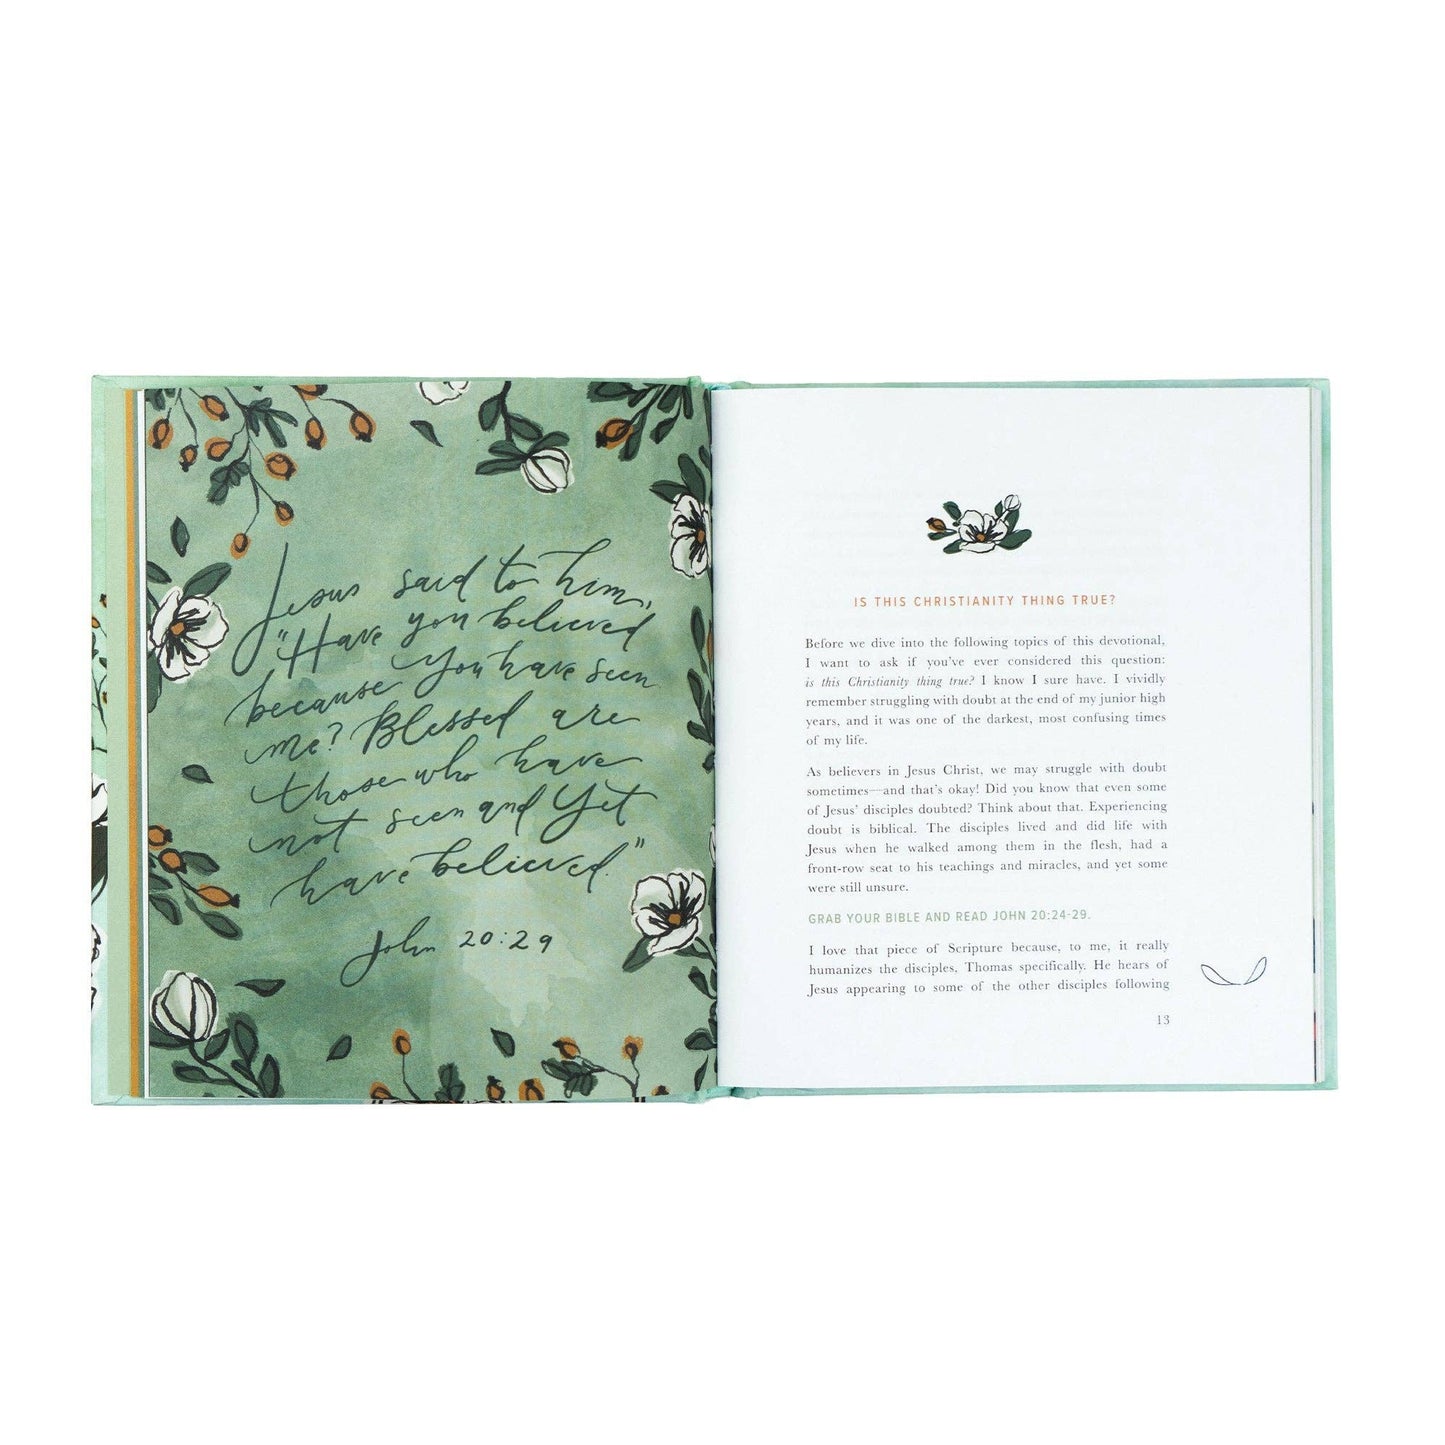 Jesus said to him,
"Have you believed
because you have seen
me? Blessed are
those who have
not seen and yet
have believed."
John 20:29
IS THIS CHRISTIANITY THING TRUE?
Before we dive into the following topics of this devotional,
I want to ask if you've ever considered this question:
is this Christianity thing true? I know I sure have. I vividly
remember struggling with doubt at the end of my junior high
years, and it was one of the darkest, most confusing times
of my life.
As believers in Jesus Christ, we may struggle with doubt
sometimes—and that's okay! Did you know that even some
of Jesus' disciples doubted? Think about that. Experiencing
doubt is biblical. The disciples lived and did life with
Jesus when he walked among them in the flesh, had a
front-row seat to his teachings and miracles, and yet some
were still unsure.
GRAB YOUR BIBLE AND READ JOHN 20:24-29.
I love that piece of Scripture because, to me, it really
humanizes the disciples, Thomas specifically. He hears of
Jesus appearing to some of the other disciples following
13